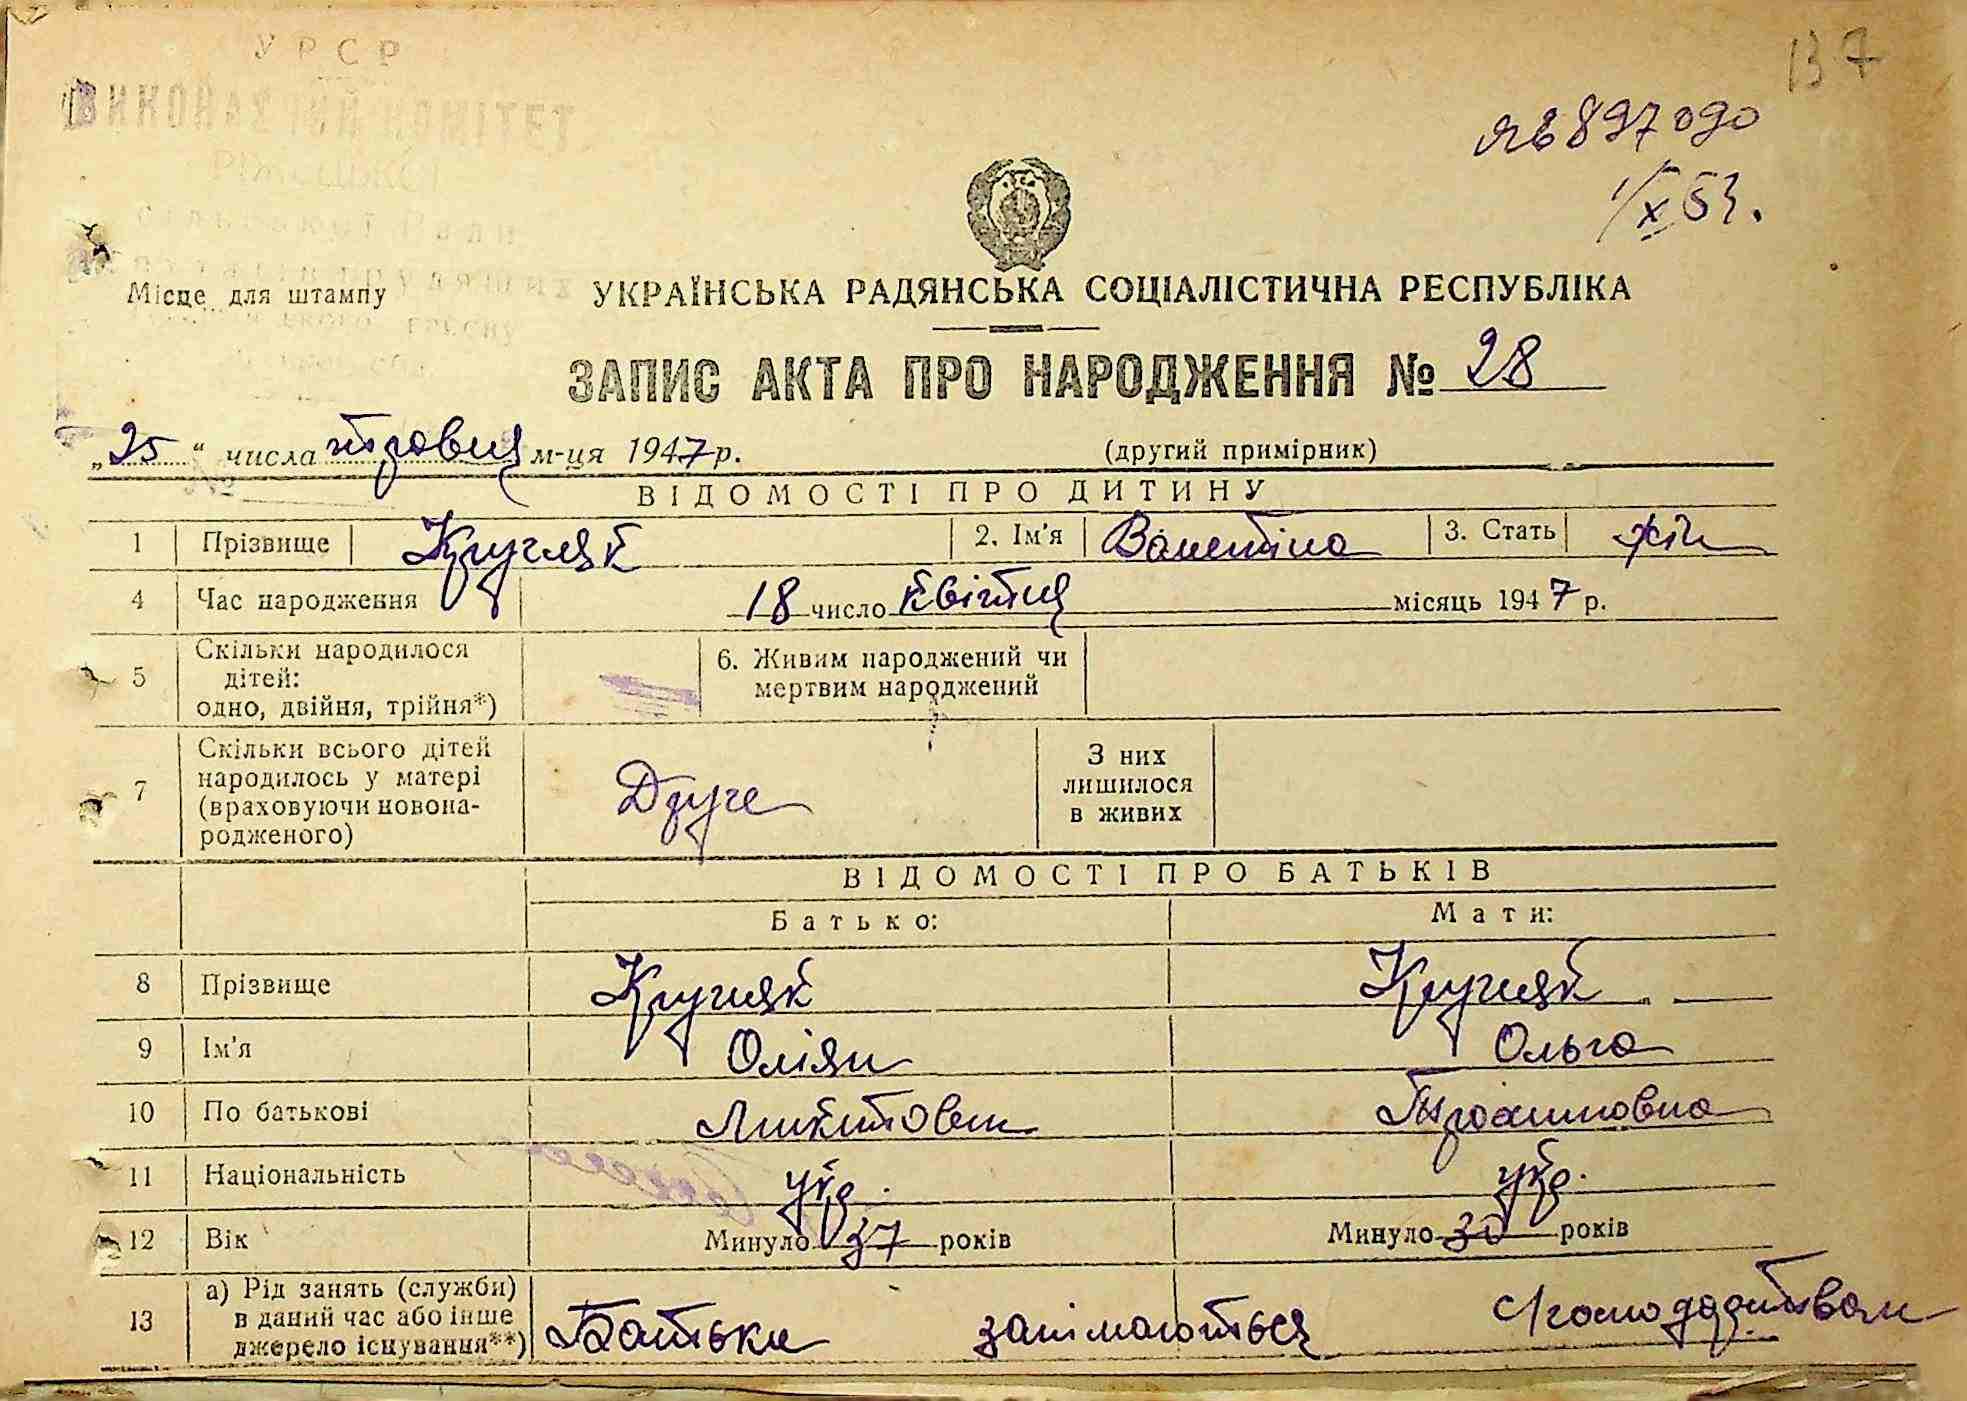 137
УРСР
ВИКОНАВЧИЙ КОМІТЕТ
ЯБ 897090
1/X 53.
Місце для штампу
УКРАЇНСЬКА РАДЯНСЬКА СОЦІАЛІСТИЧНА РЕСПУБЛІКА
ЗАПИС АКТА ПРО НАРОДЖЕННЯ № 28
„25“ числа травня м-ця 1947 р. (другий примірник)
ВІДОМОСТІ ПРО ДИТИНУ
1 Прізвище Кругляк 2. Ім'я Валентина 3. Стать жін
4 Час народження 18 число квітня місяць 1947 р.
5 Скільки народилося дітей: одно, двійня, трійня*) 6. Живим народжений чи мертвим народжений
7 Скільки всього дітей народилось у матері (враховуючи новонародженого) Друге З них лишилося в живих
ВІДОМОСТІ ПРО БАТЬКІВ
Батько: Мати:
8 Прізвище Кругляк Кругляк
9 Ім'я Оліян Ольга
10 По батькові Микитович Трохимовна
11 Національність укр. укр.
12 Вік Минуло 37 років Минуло 30 років
13 а) Рід занять (служби) в даний час або інше джерело існування**) Батьки занімаються с/господарством